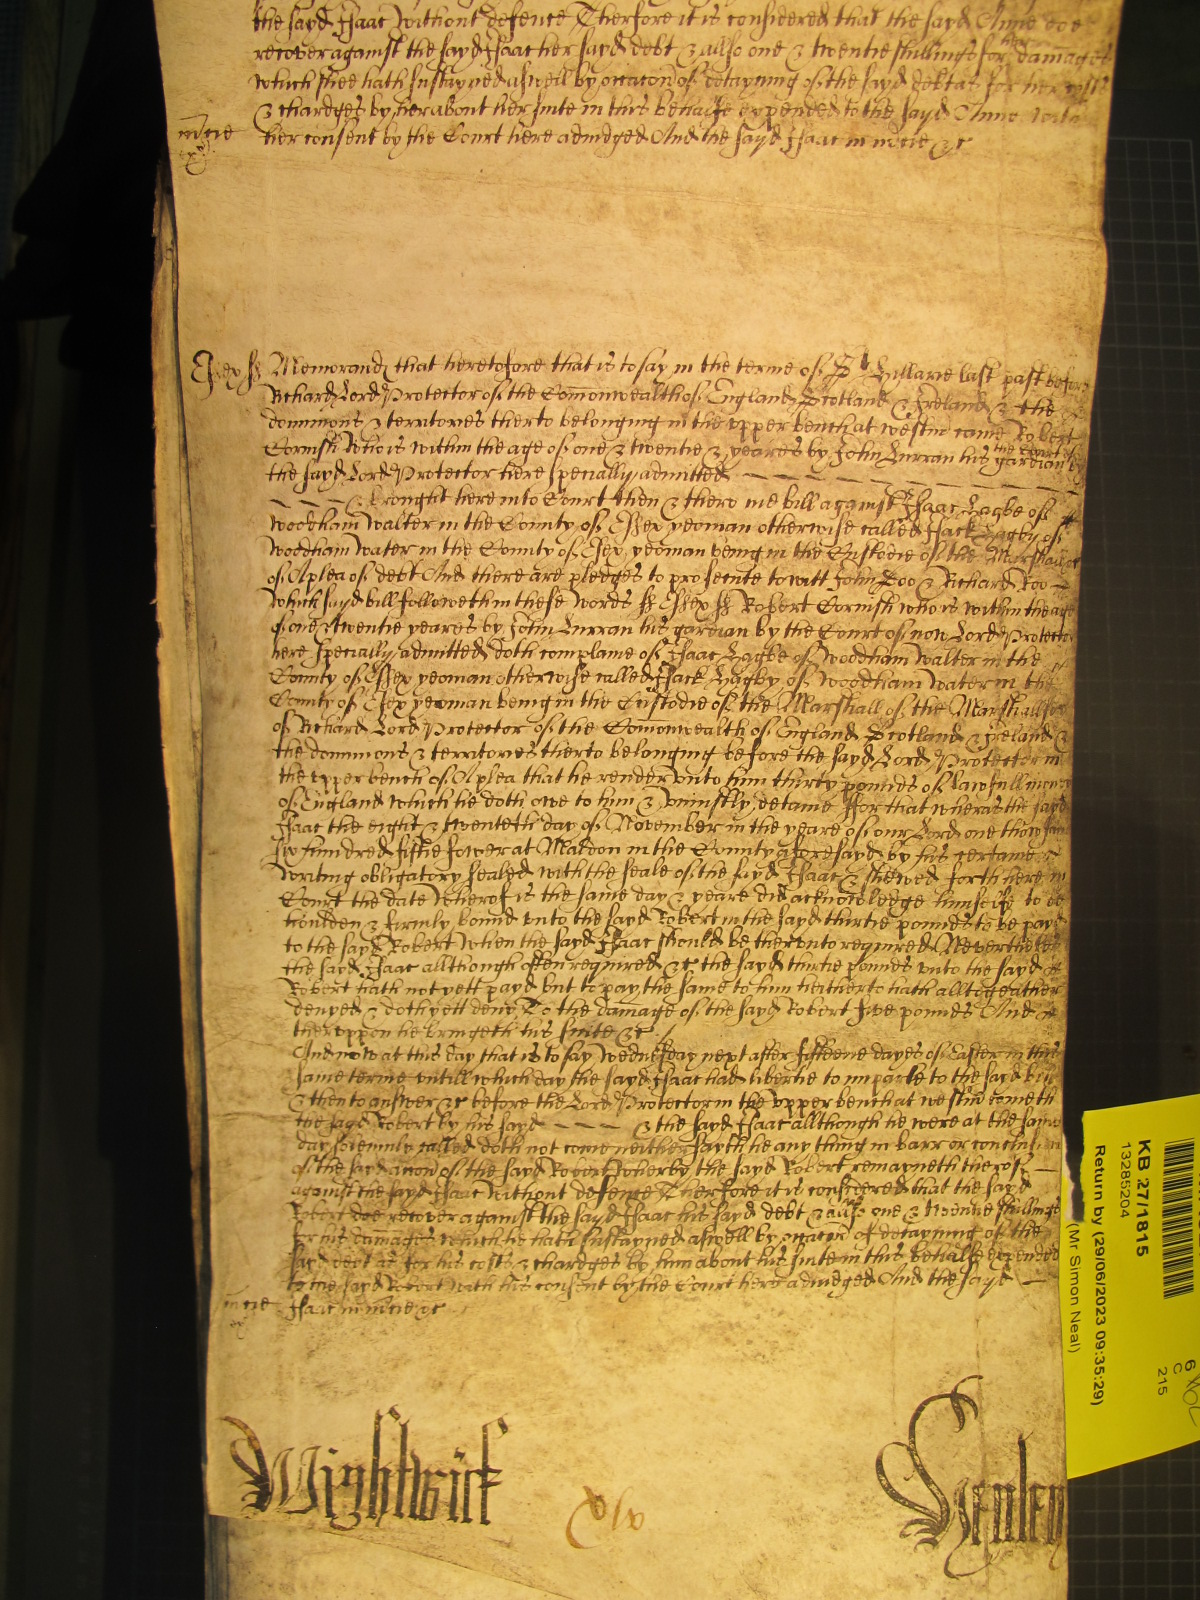 the sayd Isaac without defence Therfore it is considered that the sayd Anne doe
recover against the sayd Isaac her sayd debt & allso one & twentie shillings for her damages
which shee hath sustayned aswell by occacon of detayning of the sayd debt as for her costs
& chardges by her about her suite in this behalfe expended to the sayd Anne with
mcie her consent by the Court here adiudged And the sayd Isaac in mcie &c
Essex ss Memorand that heretofore that is to say in the terme of St Hillarie last past before
Richard Lord Protector of the Comonwealth of England Scotland & Ireland & the
dominions & territories therto belonging in the upper bench at westm came Robert
Cornish who is within the age of one & twentie yeares by John Curran his gardian by the Court of
the sayd Lord Protector here specially admitted
& brought here into Court then & there his bill against Isaac Hagbe of
Woodham Walter in the County of Essex yeoman otherwise called Isack Hagby of
Woodham Water in the County of Essex yeoman being in the Custodie of the Marshall &c
of A plea of debt And there are pledges to prosecute to witt John Doo & Richard Roo
Which sayd bill followeth in these words ss Essex ss Robert Cornish who is within the age
of one & twentie yeares by John Curran his gardian by the Court of now Lord Protector
here specially admitted doth complaine of Isaac Hagbe of Woodham Walter in the
County of Essex yeoman otherwise called Isack Hagby of Woodham Water in the
County of Essex yeoman being in the Custodie of the Marshall of the Marshallsea
of Richard Lord Protector of the Comonwealth of England Scotland & Ireland &
the dominions & territories therto belonging before the sayd Lord Protector in
the upper bench of A plea that he render unto him thirty pounds of lawfull money
of England which he doth owe to him & uniustly detaine For that wheras the sayd
Isaac the eight & twenteth day of November in the yeare of our Lord one thousand
six hundred fiftie fower at Maldon in the County aforesayd by his certaine
writing obligatory sealed with the seale of the sayd Isaac & shewed forth here in
Court the date wherof is the same day & yeare did acknowledge himselfe to be
houlden & firmly bound unto the sayd Robert in the sayd thirtie pounds to be payd
to the sayd Robert when the sayd Isaac should be therunto required Neverthelesse
the sayd Isaac allthough often required &c the sayd thirtie pounds unto the sayd
Robert hath not yett payd but to pay the same to him hitherto hath alltogeather
denyed & doth yett deny To the damage of the sayd Robert five pounds And
theruppon he bringeth his suite &c
And now at this day that is to say Wednesday next after fifteene dayes of Easter in this
same terme untill which day the sayd Isaac had libertie to imparle to the sayd bill
& then to answer &c before the Lord Protector in the upper bench at westm cometh
the sayd Robert by his sayd & the sayd Isaac allthough he were at the same
day solemnly called doth not come neither sayth he any thing in barr or conclusion
of the sayd accon of the sayd Robert wherby the sayd Robert remayneth therof
against the sayd Isaac without defence Therfore it is considered that the sayd
Robert doe recover against the sayd Isaac his sayd debt & allso one & twentie shillings
for his damages which he hath sustayned aswell by occacon of detayning of the
sayd debt as for his costs & chardges by him about his suite in this behalfe expended
to the sayd Robert with his consent by the Court here adiudged And the sayd
mcie Isaac in mcie &c
Wightwick
Henley
KB 27/1815
13285204
Return by (29/06/2023 09:35:29)
(Mr Simon Neal)
6
C
215